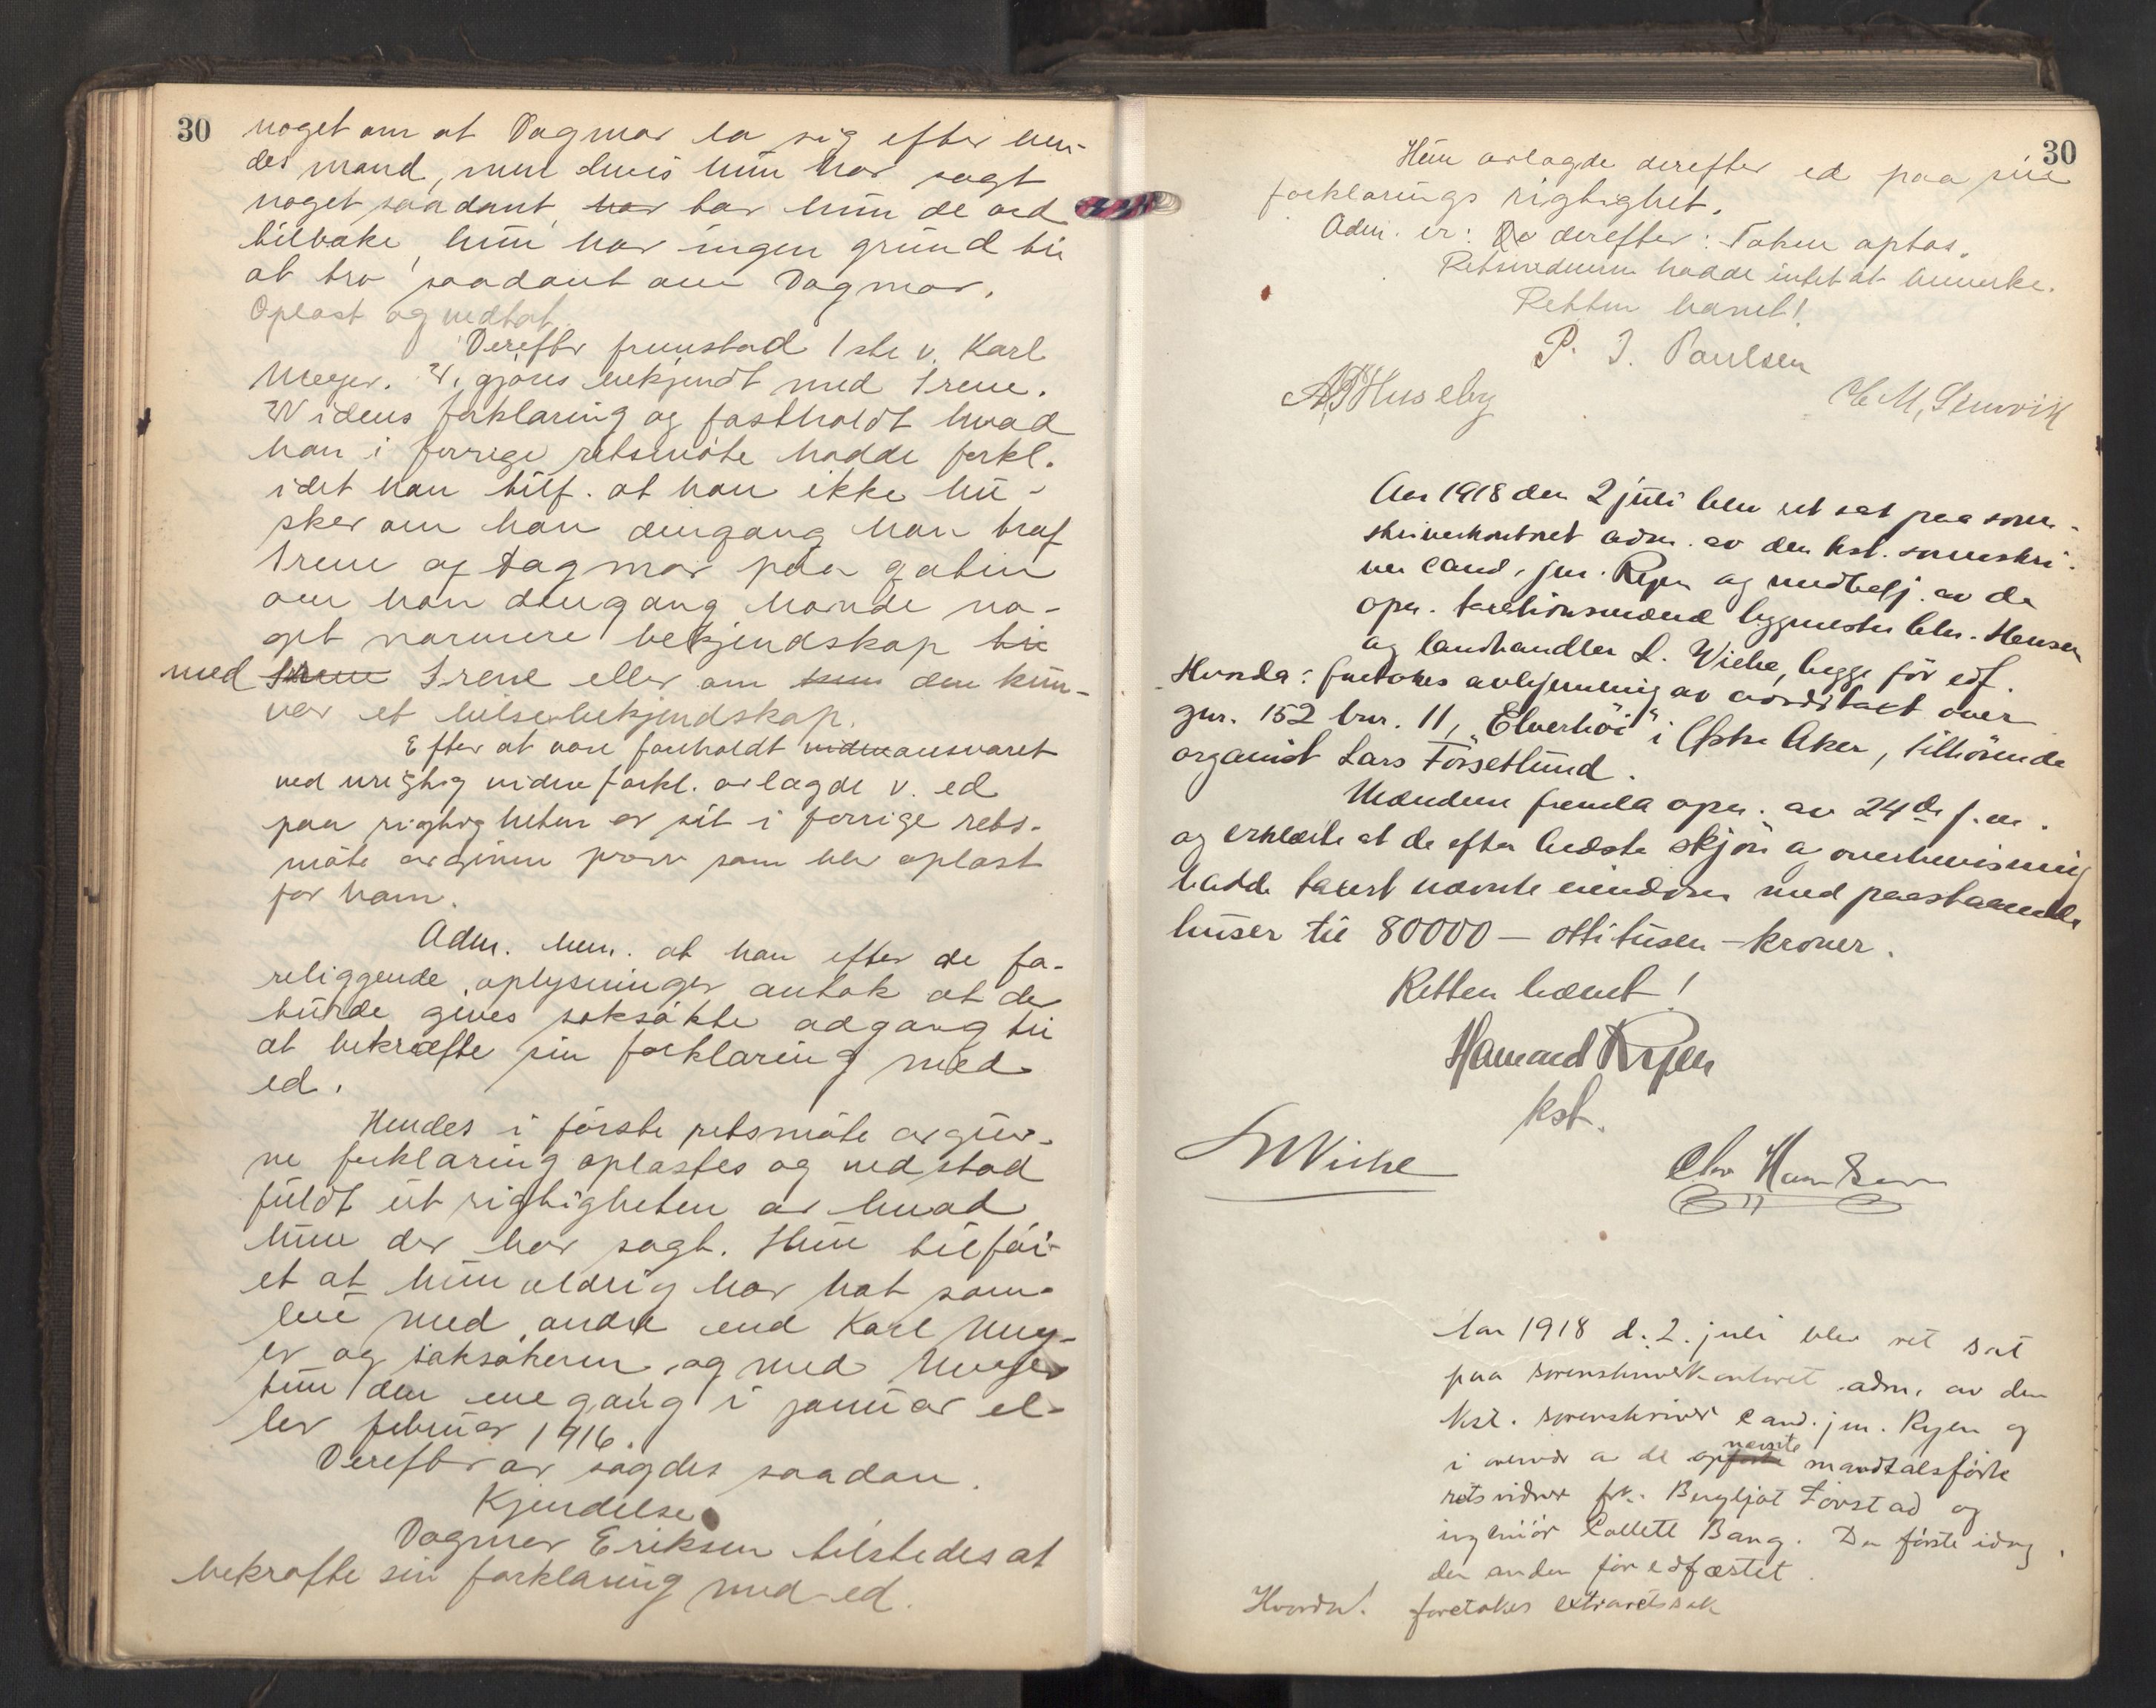 30
noget om at Dagmar la sig efter hen-
des mand, men hvis hun har sagt
noget saadant, har tar hun de ord
tilbake, hun har ingen grund til
at tro saadant om Dagmar.
Oplæst og vedtat.
Derefter fremstod 1ste v. Karl
Meyer. V. gjøres bekjendt med Irene
Widens forklaring og fastholdt hvad
han i forrige retsmøte hadde forkl.
idet han tilf. at han ikke hu-
sker om han dengang han traf
Irene og Dagmar paa gaten
om han dengang havde no-
get nærmere bekjendskap til
med Irene Irene eller om hun den kun
var et hilsebekjendskap.
Efter at være foreholdt vidneansvaret
ved urigtig vidneforkl. avlagde v. ed
paa rigtigheten av sit i forrige rets-
møte avgivne prov som blev oplæst
for ham.
Adm. bem. at han efter de fo-
religgende oplysninger antok at der
burde gives saksøkte adgang til
at bekræfte sin forklaring med
ed.
Hendes i første retsmøte avgiv-
ne forklaring oplæstes og vedstod
fuldt ut rigtigheten av hvad
hun der har sagt. Hun tilføi-
et at hun aldrig har hat sam-
leie med andre end Karl Mey-
er og saksøkeren, og med Meyer
kun den ene gang i januar el-
ler februar 1916.
Derefter avsagdes saadan
Kjendelse
Dagmar Eriksen tilstedes at
bekræfte sin forklaring med ed.
30
Hun avlagde derefter ed paa sin
forklarings rigtighet.
Adm. er: De derefter: Saken optas.
Retsvidnerne hadde intet at bemerke.
Retten hævet!
P. J. Paulsen
A Huseby
M.
Aar 1918 den 2 juli blev ret sat paa soren-
skriverkontoret adm. av den kst. sorenskri-
ver cand. jur. Ryen og medbetj. av de
opn. takstationsmænd byggmester Chr. Hansen
og landhandler L. Wiche, begge før edf.
Hvorda: foretokes avhjemling av taxt over
gnr. 152 brn. 11, "Elverhöi" i Østre Aker, tilhörende
organist Lars Forsetlund.
Mændene fremla opn. av 24de f.m.
og erklærte at de efter bedste skjøn og overbevisning
hadde taxert nævnte eiendom med paastaaende
huser til 80000 – ottitusen – kroner.
Retten hævet!
Hamond Ryen
kst.
L Wiche
Chr Hansen
Aar 1918 d. 2. juli blev ret sat
paa sorenskriverkontoret adm. av den
kst. sorenskriver cand. jur. Ryen og
i overvær av de nævnte mandtalsførte
retsvidner frk. Bergljot Tovstad og
ingeniør Collett Bang. Den første idag,
den anden før edfæstet.
Hvorda. foretokes extraretssak